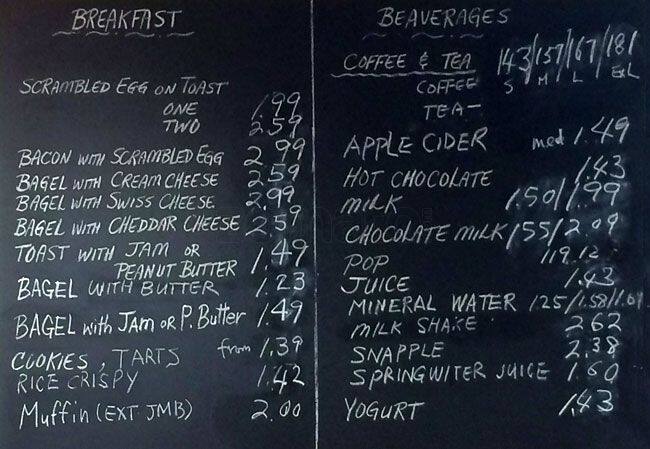 BREAKFAST
SCRAMBLED EGG ON TOAST
ONE 1.99
TWO 2.59
BACON WITH SCRAMBLED EGG 2.99
BAGEL WITH CREAM CHEESE 2.59
BAGEL WITH SWISS CHEESE 2.99
BAGEL WITH CHEDDAR CHEESE 2.59
TOAST WITH JAM OR
PEANUT BUTTER 1.49
BAGEL WITH BUTTER 1.23
BAGEL with JAM OR P. Butter 1.49
COOKIES, TARTS from 1.39
RICE CRISPY 1.42
Muffin (EXT JMB) 2.00
BEAVERAGES
COFFEE & TEA 143/157/167/181
COFFEE S M L EXL
TEA—
APPLE CIDER med 1.49
HOT CHOCOLATE 1.43
MILK 1.50/1.99
CHOCOLATE MILK 155/2.09
POP
JUICE 1.43
MINERAL WATER 1.25/1.58/
MILK SHAKE 2.62
SNAPPLE 2.38
SPRINGWITER JUICE 1.60
YOGURT 1.43